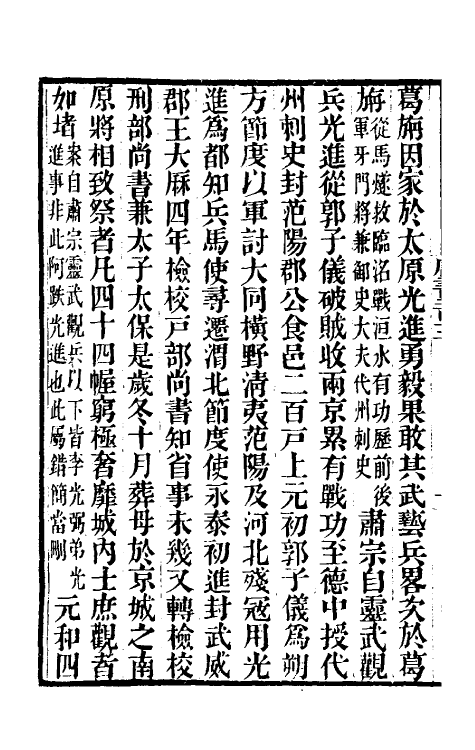 葛旃因家於太原光進勇毅果敢其武藝兵畧次於葛
旃從馬燧救臨洺戰洹水有功歷前後軍牙門將兼御史大夫代州刺史肅宗自靈武觀
兵光進從郭子儀破賊收兩京累有戰功至德中授代
州刺史封范陽郡公食邑二百戸上元初郭子儀為朔
方節度以軍討大同橫野淸夷范陽及河北殘寇用光
進為都知兵馬使尋遷渭北節度使永泰初進封武威
郡王大厤四年檢校戸部尚書知省事未幾又轉檢校
刑部尚書兼太子太保是歲冬十月葬母於京城之南
原將相致祭者凡四十四幄窮極奢靡城內士庶觀者
如堵案自肅宗靈武觀兵以下皆李光弼弟光進事非此阿跌光進也此屬錯簡當刪元和四